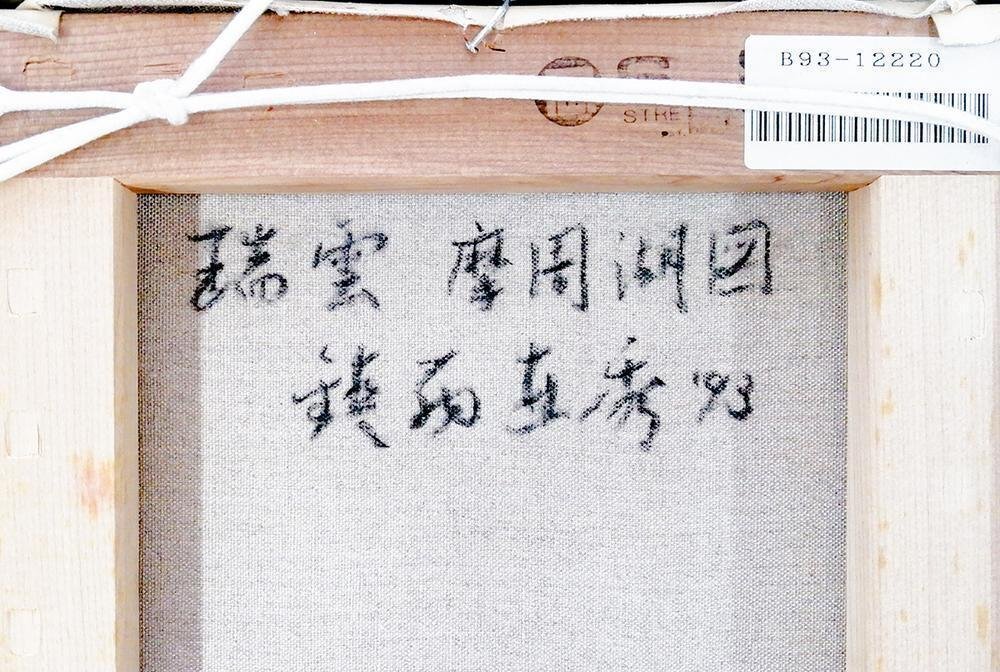 B93-12220
瑞雲 摩周湖図
鎮西直秀 '93